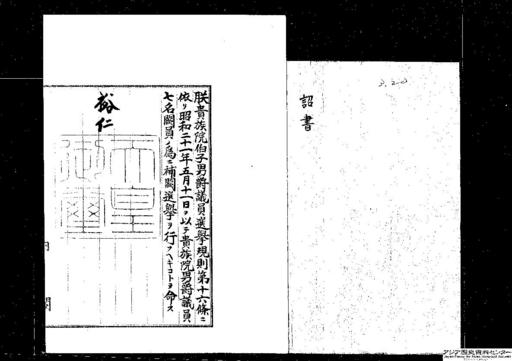 3.2-3
詔書
朕貴族院伯子男爵議員選擧規則第十六條ニ
依リ昭和二十一年五月十一日ヲ以テ貴族院男爵議員
七名闕員ノ爲ニ補闕選擧ヲ行フヘキコトヲ命ス
裕仁
天皇御璽
内閣
アジア歴史資料センター